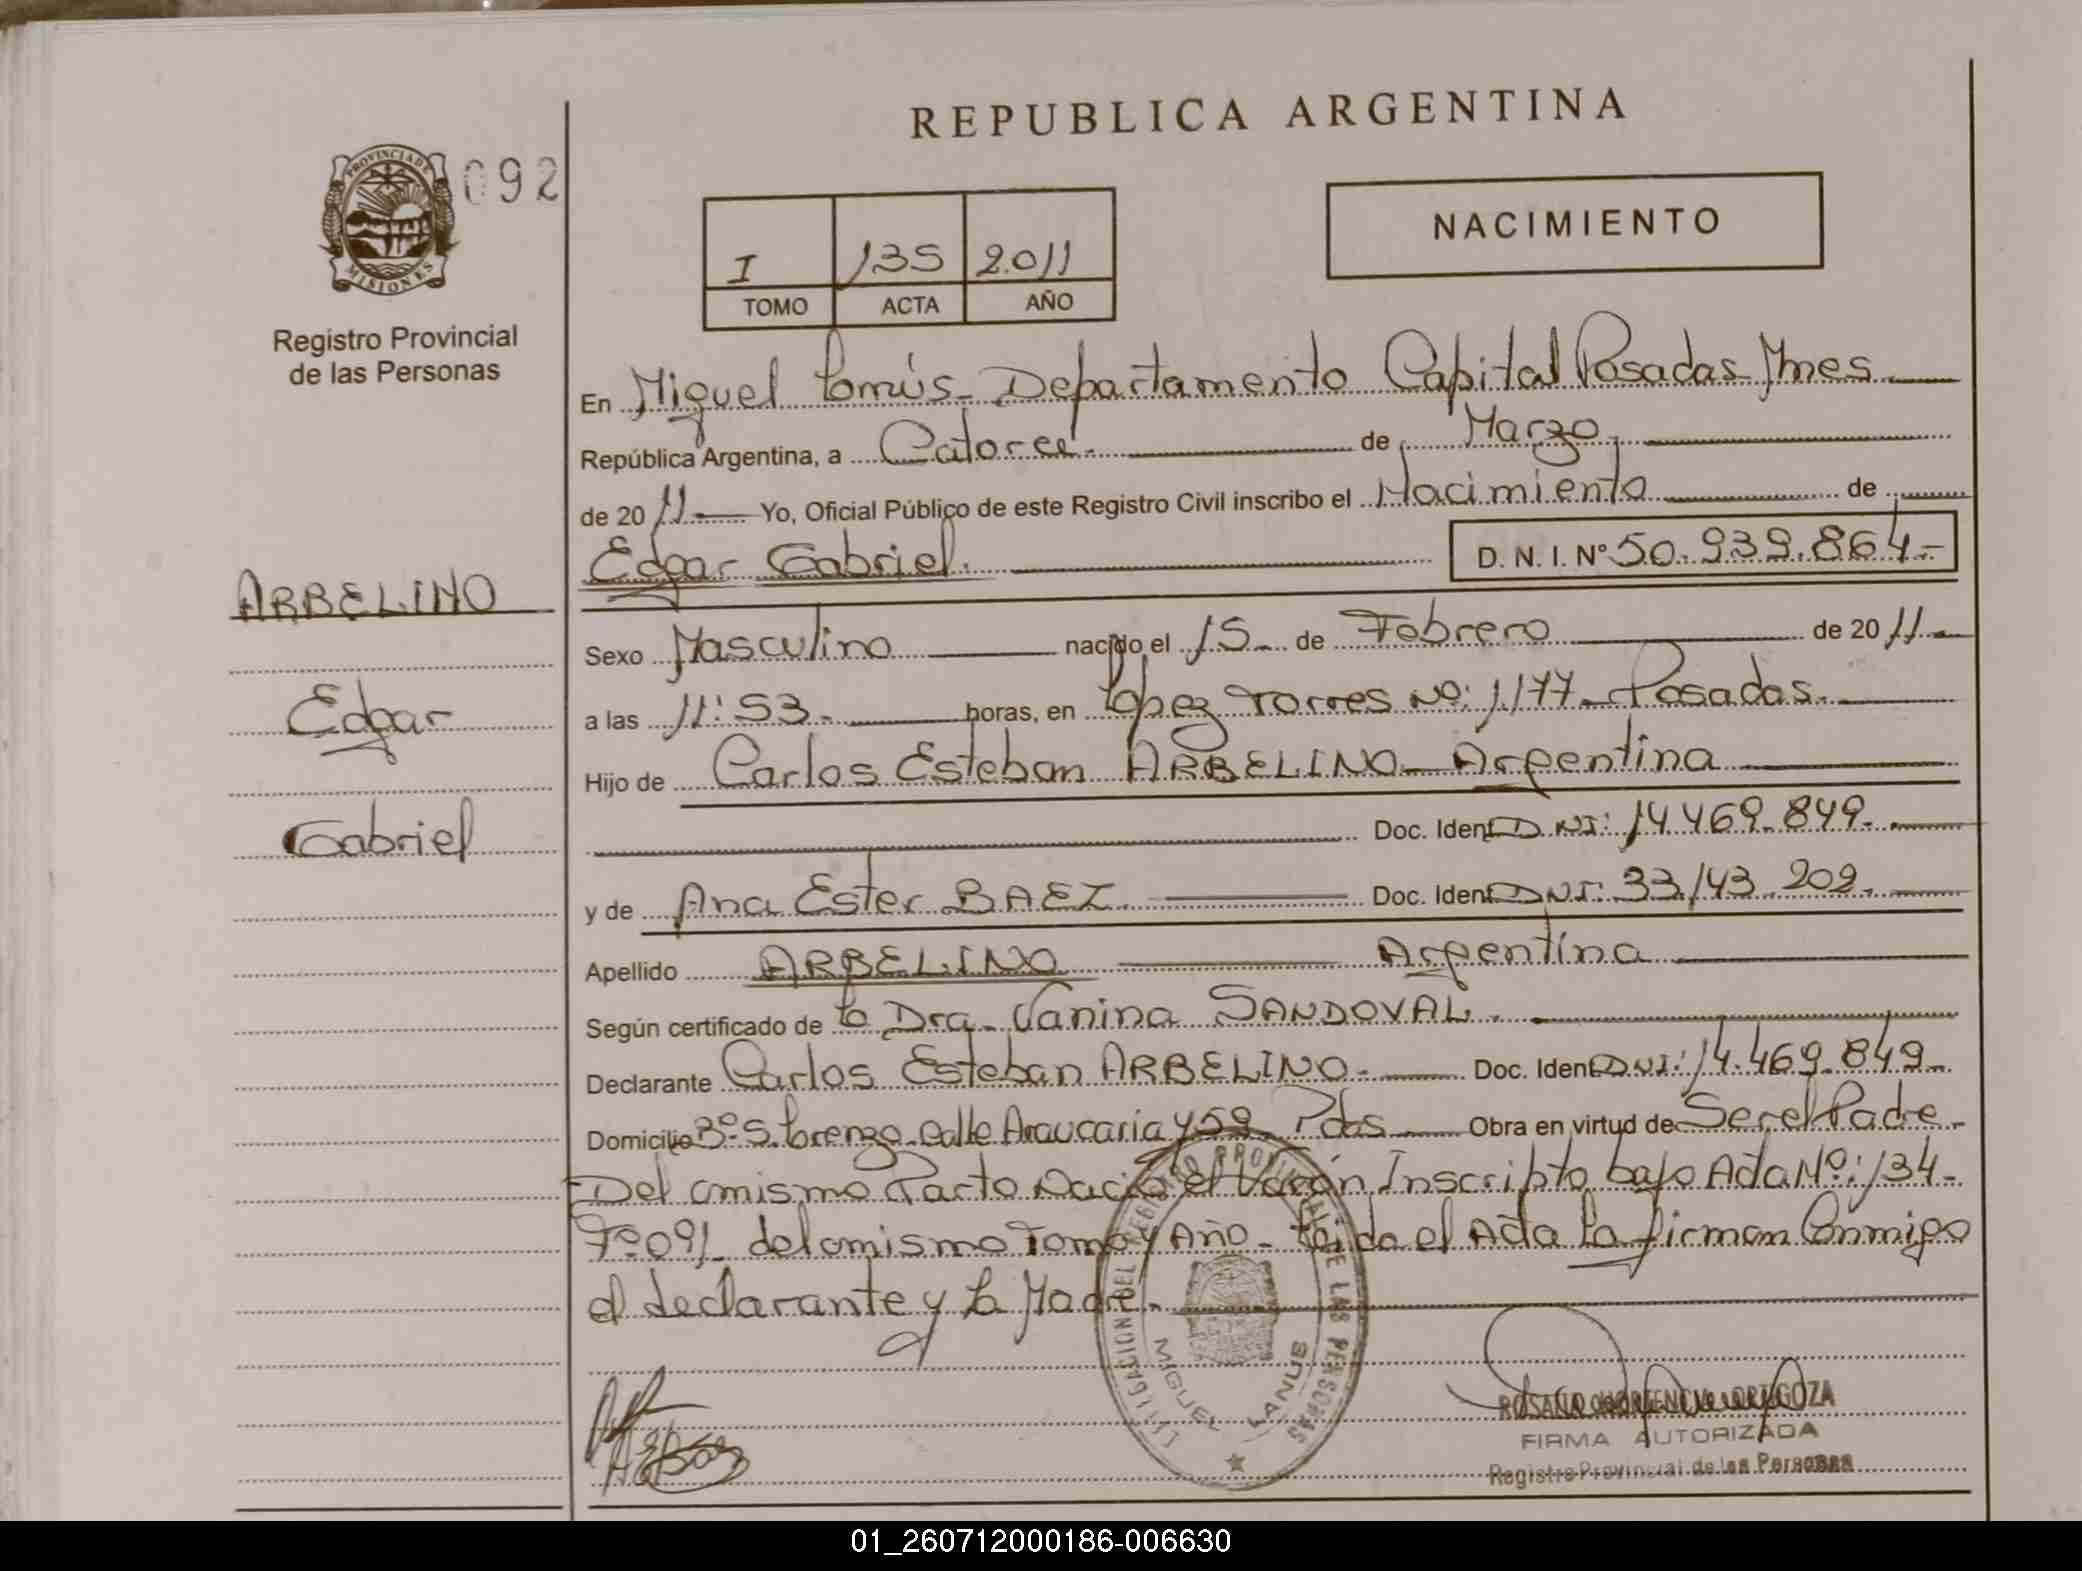 REPUBLICA ARGENTINA
PROVINCIA DE
MISIONES
092
Registro Provincial
de las Personas
I 135 2011
TOMO ACTA AÑO
NACIMIENTO
En Miguel Lanús - Departamento Capital Posadas Mnes
República Argentina, a Catorce de Marzo
de 2011 Yo, Oficial Público de este Registro Civil inscribo el Nacimiento de
Edgar Gabriel. D. N. I. N° 50.939.864-
ARBELINO
Edgar
Gabriel
Sexo Masculino nacido el 15 de Febrero de 2011
a las 11:53 horas, en López Torres Nº: 1177 - Posadas.
Hijo de Carlos Esteban ARBELINO - Argentina
Doc. Iden DNI: 14.469.849
y de Ana Ester BAEZ Doc. Iden DNI: 33.143.209
Apellido ARBELINO Argentina
Según certificado de la Dra. Vanina SANDOVAL
Declarante Carlos Esteban ARBELINO Doc. Iden DNI: 14.469.849
Domicilio Bº S. Lorenzo calle Araucaria y 59 Pdas Obra en virtud de Ser el Padre
Del mismo Parto Nació el Varón Inscripto bajo Acta Nº: 134-
Fº 091 del mismo Tomo y Año - Leida el Acta la firman Conmigo
el declarante y la Madre.
DELEGACION DEL REGISTRO PROVINCIAL DE LAS PERSONAS
MIGUEL LANUS
ORTIGOZA
FIRMA AUTORIZADA
Registro Provincial de las Personas
01_260712000186-006630